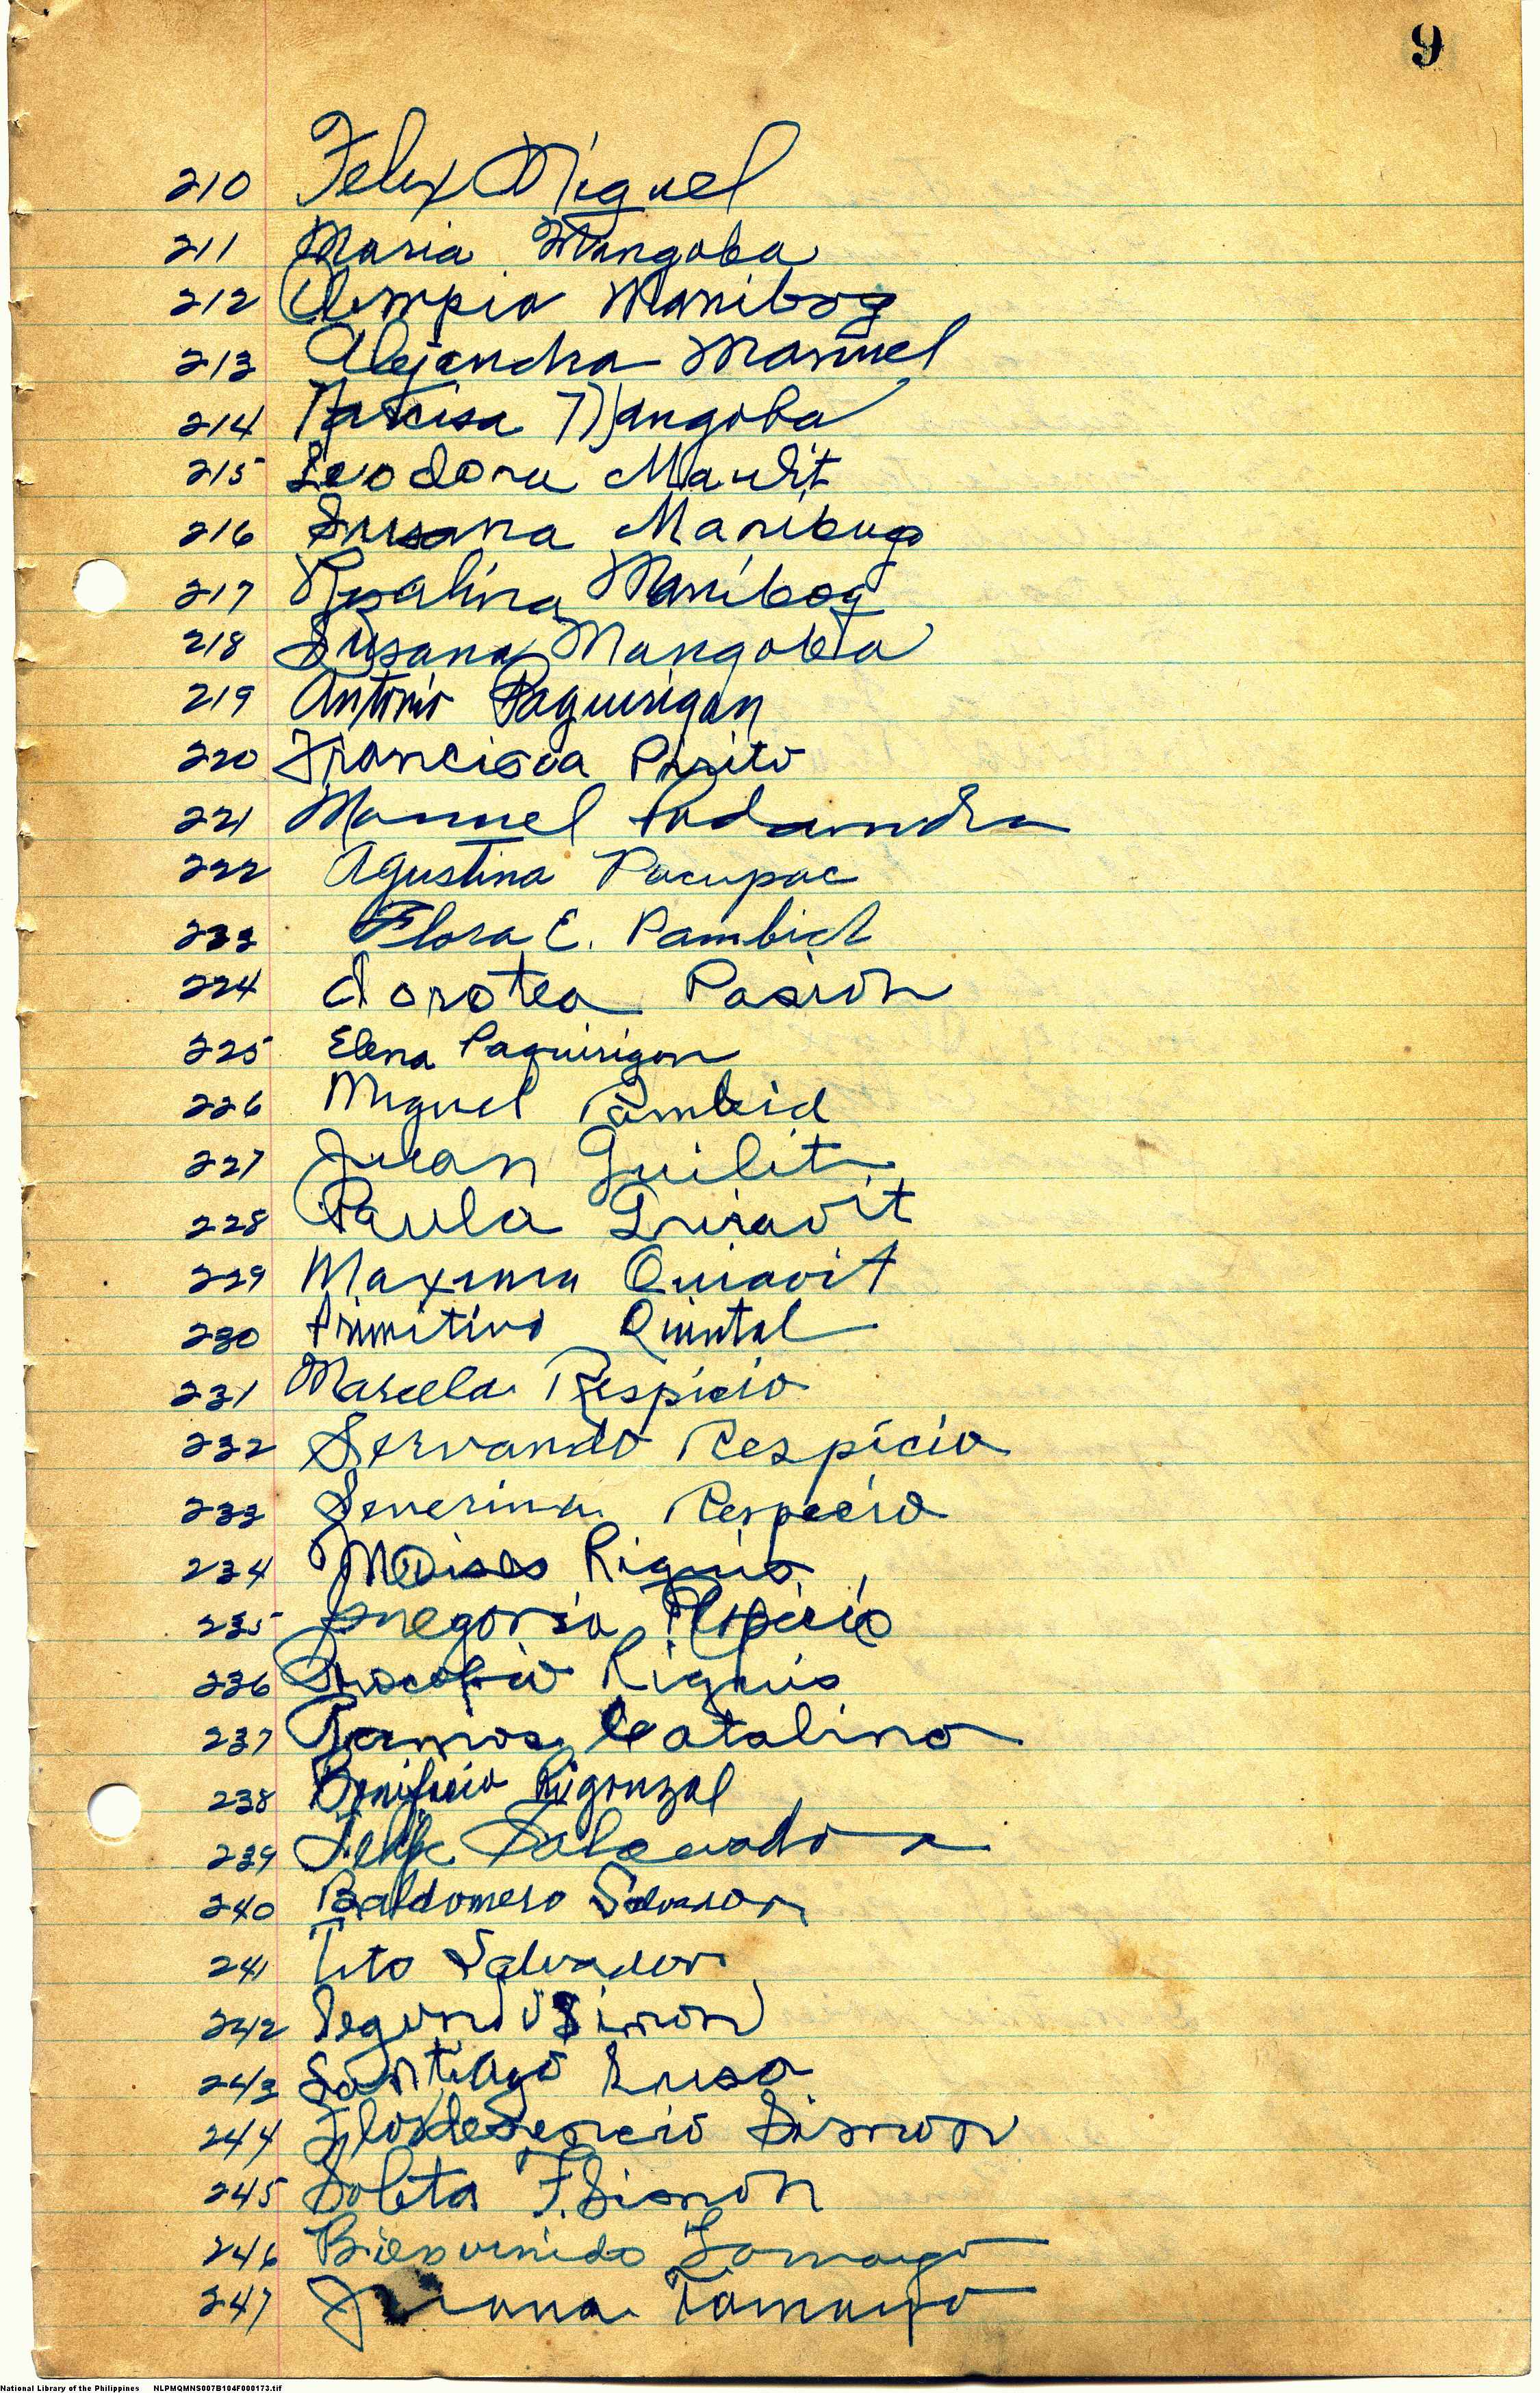 9
210 Felix Miguel
211 Maria Mangoba
212 Olempia Manibog
213 Alejandra Manuel
214 Narcisa Mangoba
215 Leodora Maulit
216 Susana Manibug
217 Rosalina Manibog
218 Susana Mangoba
219 Antonio Paguirigan
220 Francisca
221 Manuel
222 Agustina Pacupac
223 Flora E. Pambid
224 dorotea Pasion
225 Elena Paguirigan
226 Miguel Pambid
227 Juan Guilit
228 Paula Quiavit
229 Maxima Quiavit
230 Primitivo Quintal
231 Marcela Respicio
232 Servando Respicio
233 Severina Respecio
234 Moises
235 Gregoria Respicio
236 Procopio
237 Ramos Catalino
238 Bonifacio Rigonzal
239 Felix Salavador
240 Baldomero Salvador
241 Tito Salvador
242 Segundo Simon
243 Santiago
244 Simon
245 F. Simon
246 Bienvenido Tamayo
247 Juana Tamayo
National Library of the Philippines NLPMQMNS007B104F000173.tif